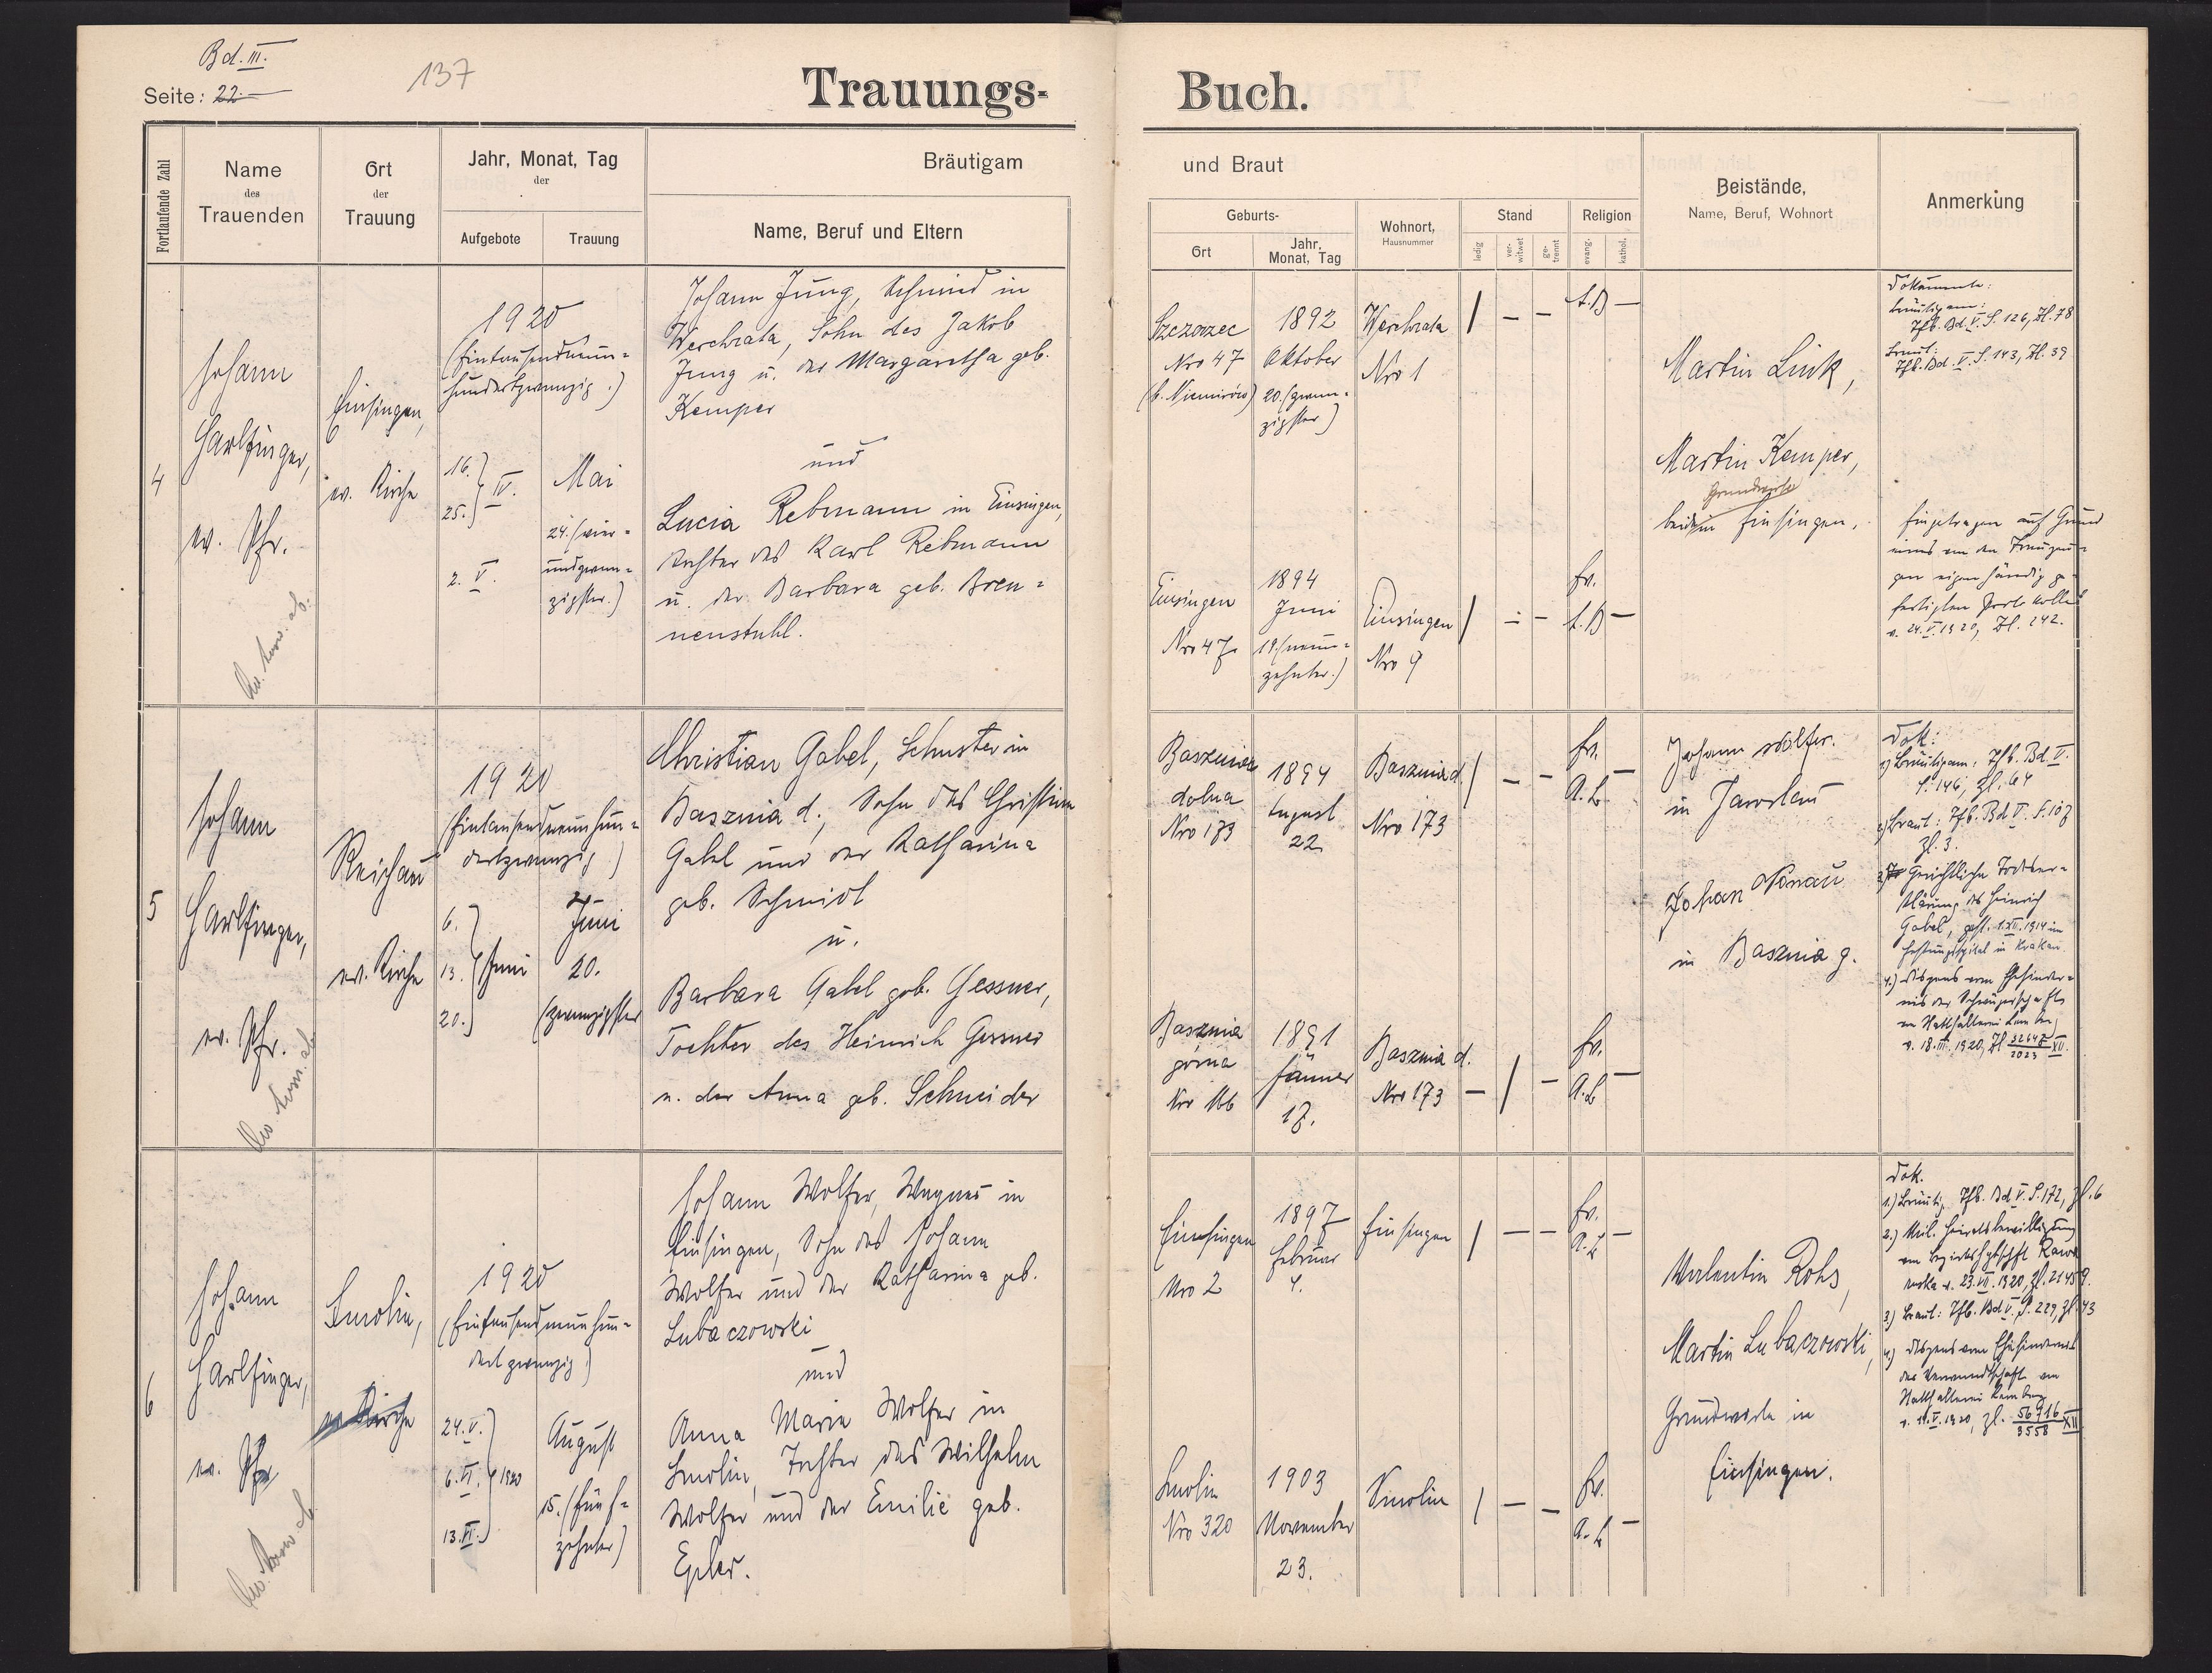 Bd. III.
Seite: 22
137
Trauungs-
Buch.
Fortlaufende Zahl
Name
des
Trauenden
Ort
der
Trauung
Jahr, Monat, Tag
der
Aufgebote
Trauung
Bräutigam
und Braut
Name, Beruf und Eltern
Geburts-
Ort
Jahr,
Monat, Tag
Wohnort,
Hausnummer
Stand
ledig
ver-
witwet
ge-
trennt
Religion
evang.
kathol.
Beistände,
Name, Beruf, Wohnort
Anmerkung
4
Johann
Harlfinger,
ev. Pfr.
Einsingen,
ev. Kirche
1920
(Eintausendneun-
hundertzwanzig.)
16.
25. IV.
2. V.
Mai
24. (vier-
undzwan-
zigster.)
Johann Jung, Schmied in
Werchrata, Sohn des Jakob
Jung u. der Margaretha geb.
Kemper
und
Lucia Rebmann in Einsingen,
Tochter des Karl Rebmann
u. der Barbara geb. Bren-
nenstuhl.
Szczerzec
Nro 47
(b. Niemirów)
1892
Oktober
20. (zwan-
zigster)
Werchrata
Nro 1
Einsingen
Nro 47
1894
Juni
19. (neun-
zehnter.)
Einsingen
Nro 9
Ev.
Martin Link,
Martin Kemper,
Grundwirte
beide in Einsingen.
Dokumente:
Bräutigam:
Tfb. Bd. V. S. 126, Zl. 78
Braut:
Tfb. Bd. V. S. 143, Zl. 39
Eingetragen auf Grund
eines von den Trauzeu-
gen eigenhändig ge-
fertigten Protokolles
v. 24. V. 1920, Zl. 242.
5
Johann
Harlfinger,
ev. Pfr.
Reichau
ev. Kirche
1920
(Eintausendneunhun-
dertzwanzig)
6.
13. Juni
20.
Juni
20.
(zwanzigster
Christian Gabel, Schuster in
Basznia d., Sohn des Christian
Gabel und der Katharina
geb. Schmidt
u.
Barbara Gabel geb. Gessner,
Tochter des Heinrich Gessner
u. der Anna geb. Schneider
Basznia
dolna
Nro 173
1894
August
22
Basznia d.
Nro 173
Ev.
A.B.
Basznia
górna
Nro 166
1891
Jänner
17.
Basznia d.
Nro 173
Ev.
A.B.
Johann Wolfer.
in Jaroslau
Johan Nonau
in Basznia g.
Dok:
1) Bräutigam: Tfb. Bd. V.
S. 146, Zl. 64
2) Braut: Tfb. Bd V. S. 107
Zl. 3.
Gerichtliche Todeser-
klärung des Heinrich
Gabel, gest. 1. XII. 1914 im
Festungsspital in Krakau
4.) Dispens vom Ehehinder-
nis der Schwägerschaft
v. 18. III. 1920, Zl 32647/2023 XII.
6
Johann
Harlfinger,
ev. Pfr
Smolin,
ev. Kirche
1920
(Eintausendneunhun-
dertzwanzig)
24. V.
6. VI. 1920
13. VI.
August
15. (fünf-
zehnter)
Johann Wolfer, Wagner in
Einsingen, Sohn des Johann
Wolfer und der Katharina geb.
Lubaczowski
und
Anna Maria Wolfer in
Smolin, Tochter des Wilhelm
Wolfer und der Emilie geb.
Epler.
Einsingen
Nro 2
1897
Februar
4.
Einsingen
Ev.
A.B.
Smolin
Nro 320
1903
November
23.
Smolin
Ev.
A.B.
Valentin Rohs,
Martin Lubaczowski,
Grundwirte in
Einsingen.
Dok.
1.) Bräutig. Tfb. Bd V. S. 172, Zl. 6
2.) Mil. Heiratsbewilligung
v. 23. VII. 1920, Zl. 21459.
3) Braut: Tfb. Bd V. S. 229, Zl. 43
4) Dispens vom Ehehindernis
der Verwandtschaft von
Statthalterei Lemberg
v. 19. V. 1920, Zl. 56716/3558 XII